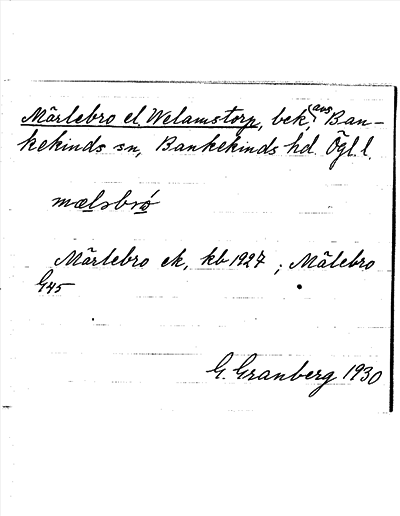 Mårlebro el. Welamstorp, bek, avs Ban-
kekinds sn, Bankekinds hd. Ögl. l.
mælsbro
Mårlebro ek, kb 1927 ; Målebro
G45
G. Granberg 1930